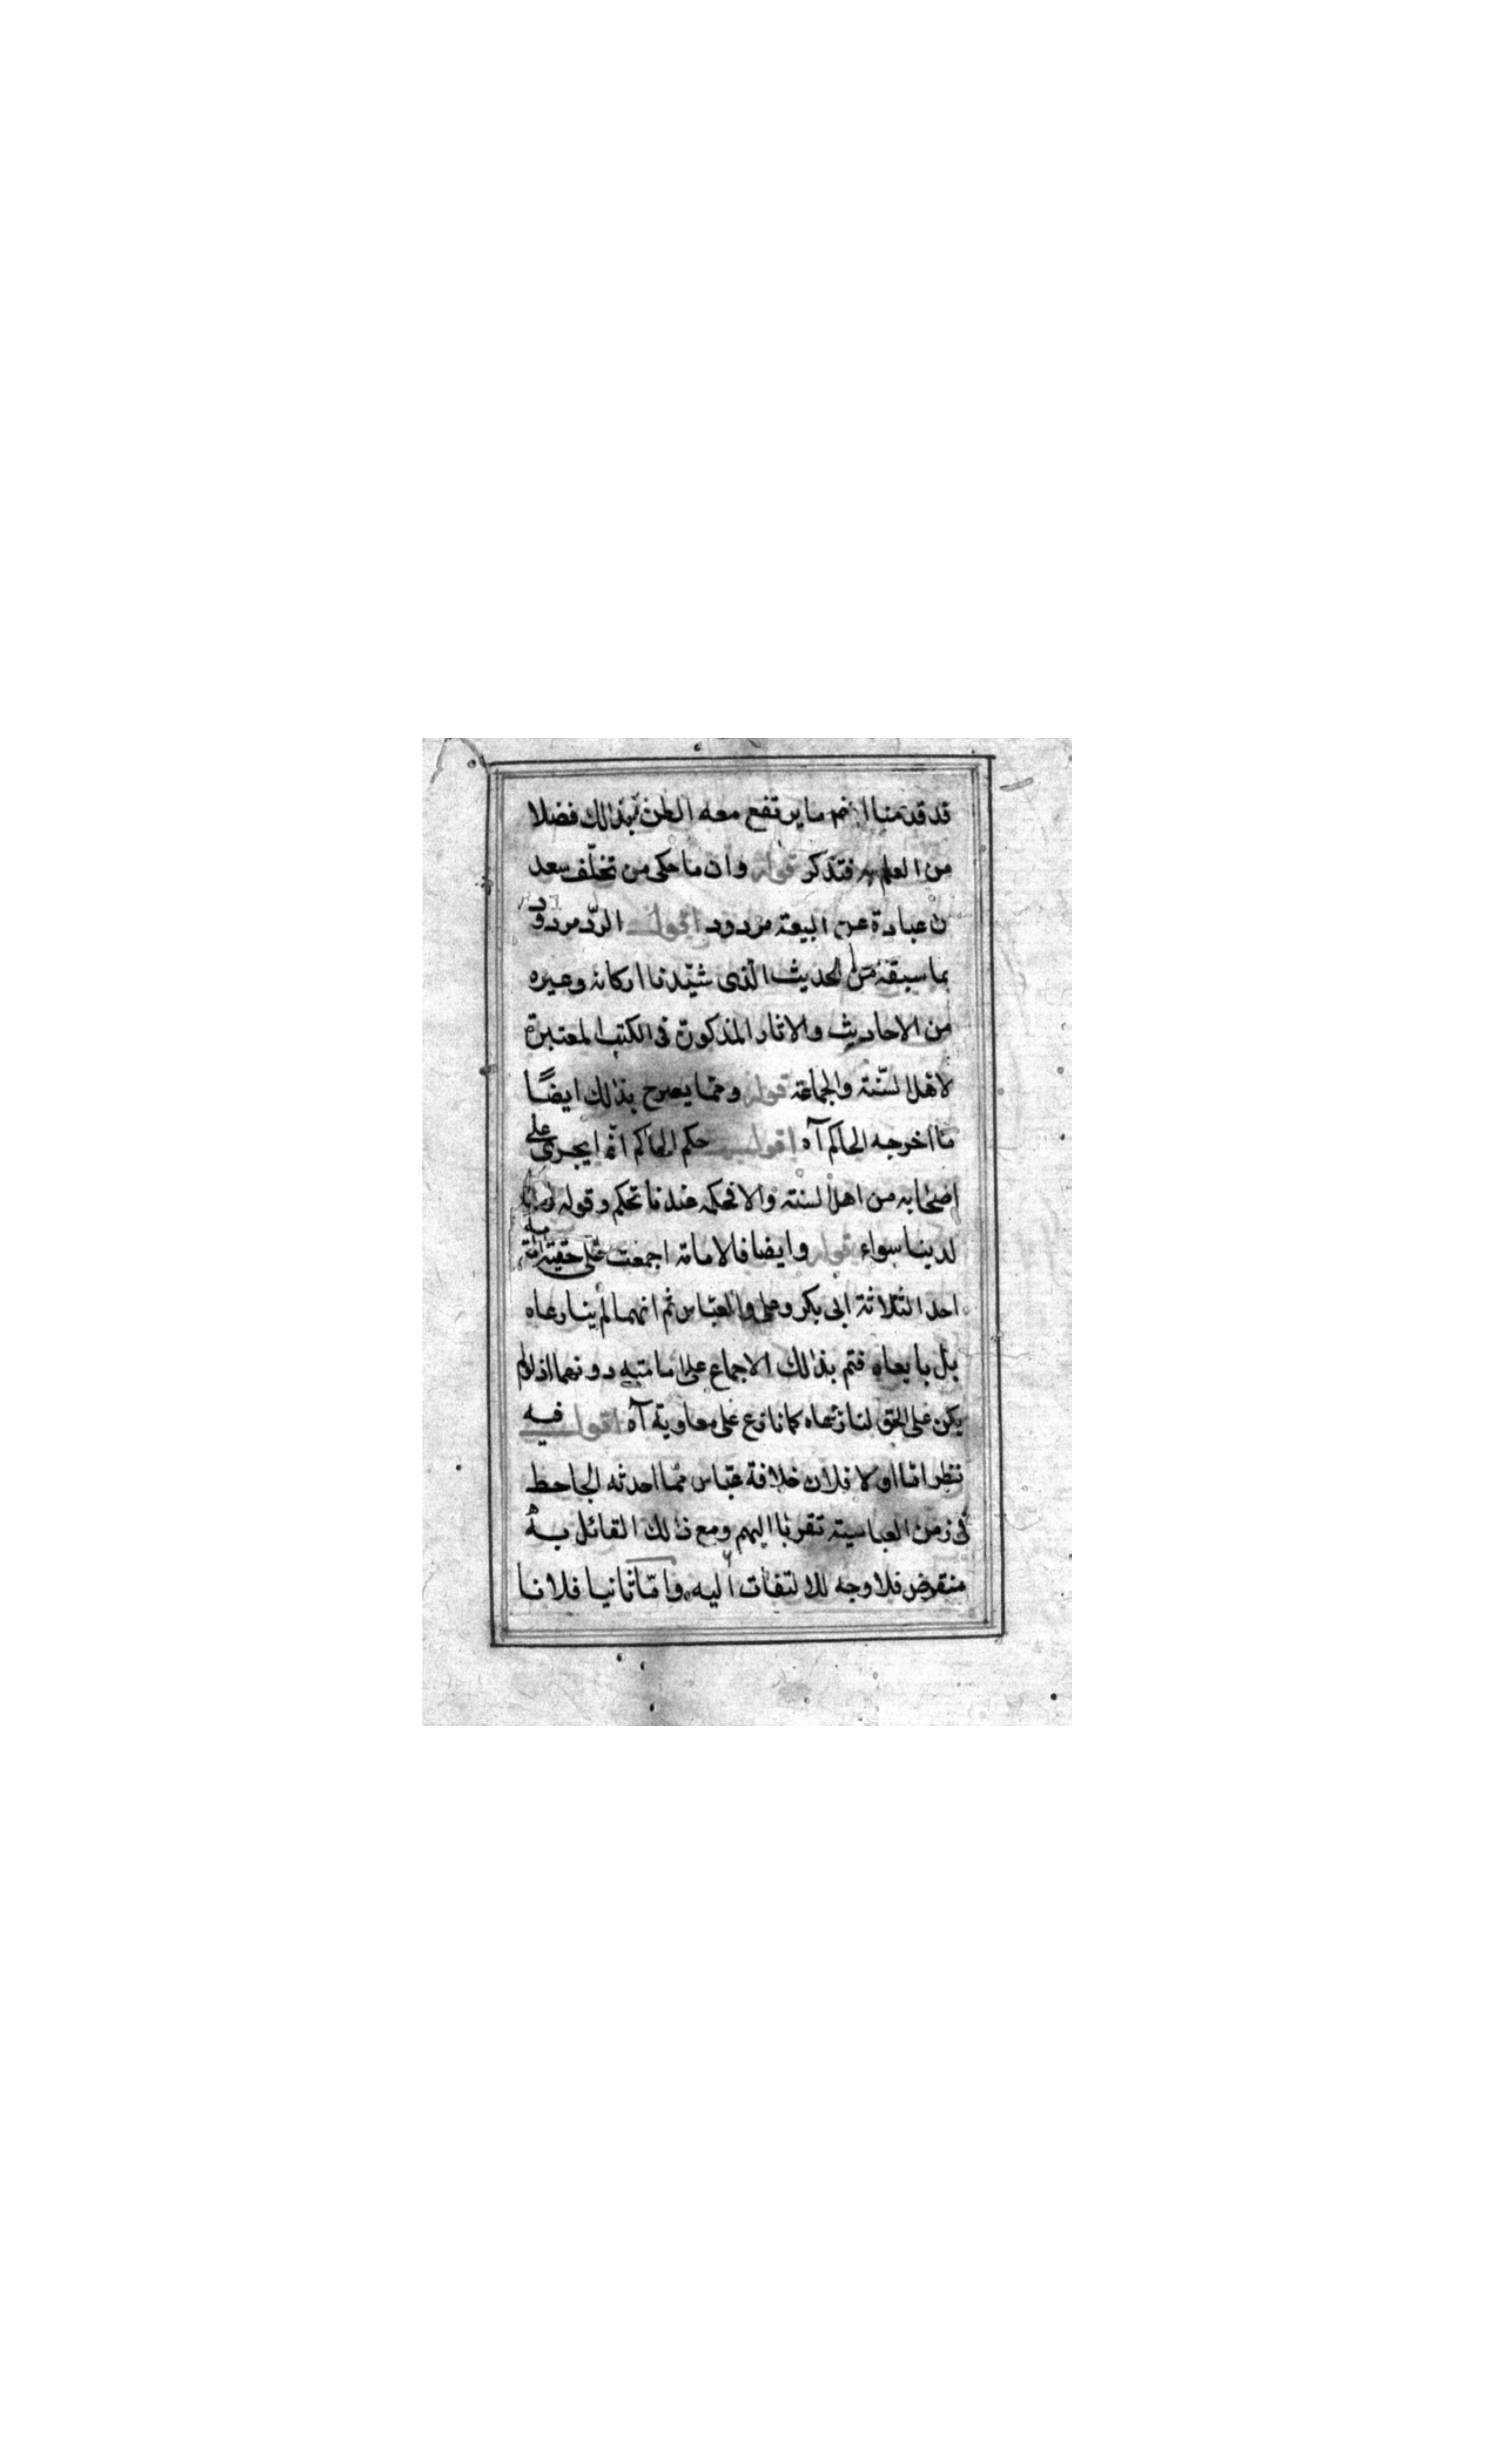 قد قدمنا انهم ما يرتفع معه الظن بذلك فضلا
من العلم به فتذكر قوله وان ما حكى من تخلف سعد
بن عبادة عن البيعة مردود اقول الردّ مردود
بما سبقه من الحديث الذى شيّدنا اركانه وغيره
من الاحاديث والاثار المذكورة فى الكتب المعتبرة
لاهل السّنة والجماعة قوله وممّا يصرح بذلك ايضًا
ما اخرجه الحاكم آه اقول حكم الحاكم انما يجرى على
اصحابه من اهل السنة والا فحكمه عندنا تحكم وقوله
لدينا سواء قوله وايضا فالامة اجمعت على حقية امامة
احد الثلاثة ابى بكر وعلى والعبّاس ثم انهما لم ينازعاه
بل بايعاه فتم بذلك الاجماع على امامته دونهما اذ لو لم
يكن على الحق لنازعاه كما نازع على معاوية آه اقول فيه
نظر امّا اولا فلان خلافة عبّاس ممّا احدثه الجاحظ
فى زمن العباسية تقربا اليهم ومع ذلك القائل به
منقرض فلا وجه للالتفات اليه وامّا ثانيا فلانا